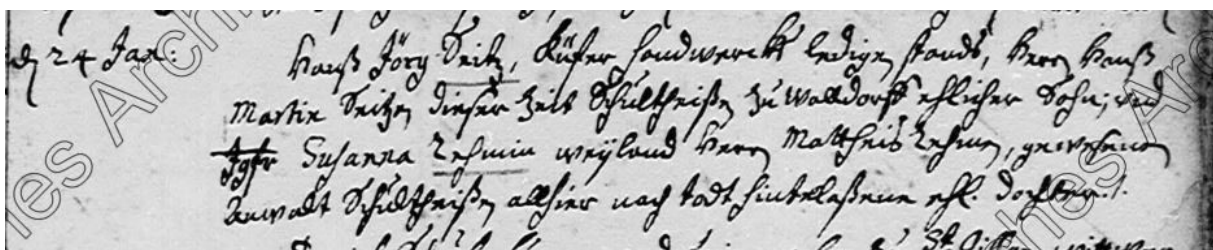 d 24 Jan: Hanß Jörg Seitz, Küfer handwercks ledigen stands, Herrn Hanß
Martin Seitzen dieser Zeit Schultheißen zu Walldorff ehlicher Sohn; und
Jgfr Susanna Zehmin weyland Herrn Mattheis Zehmen, gewesenen
Anwalt Schultheißen allhier nach todt hinterlaßene ehl. dochter.